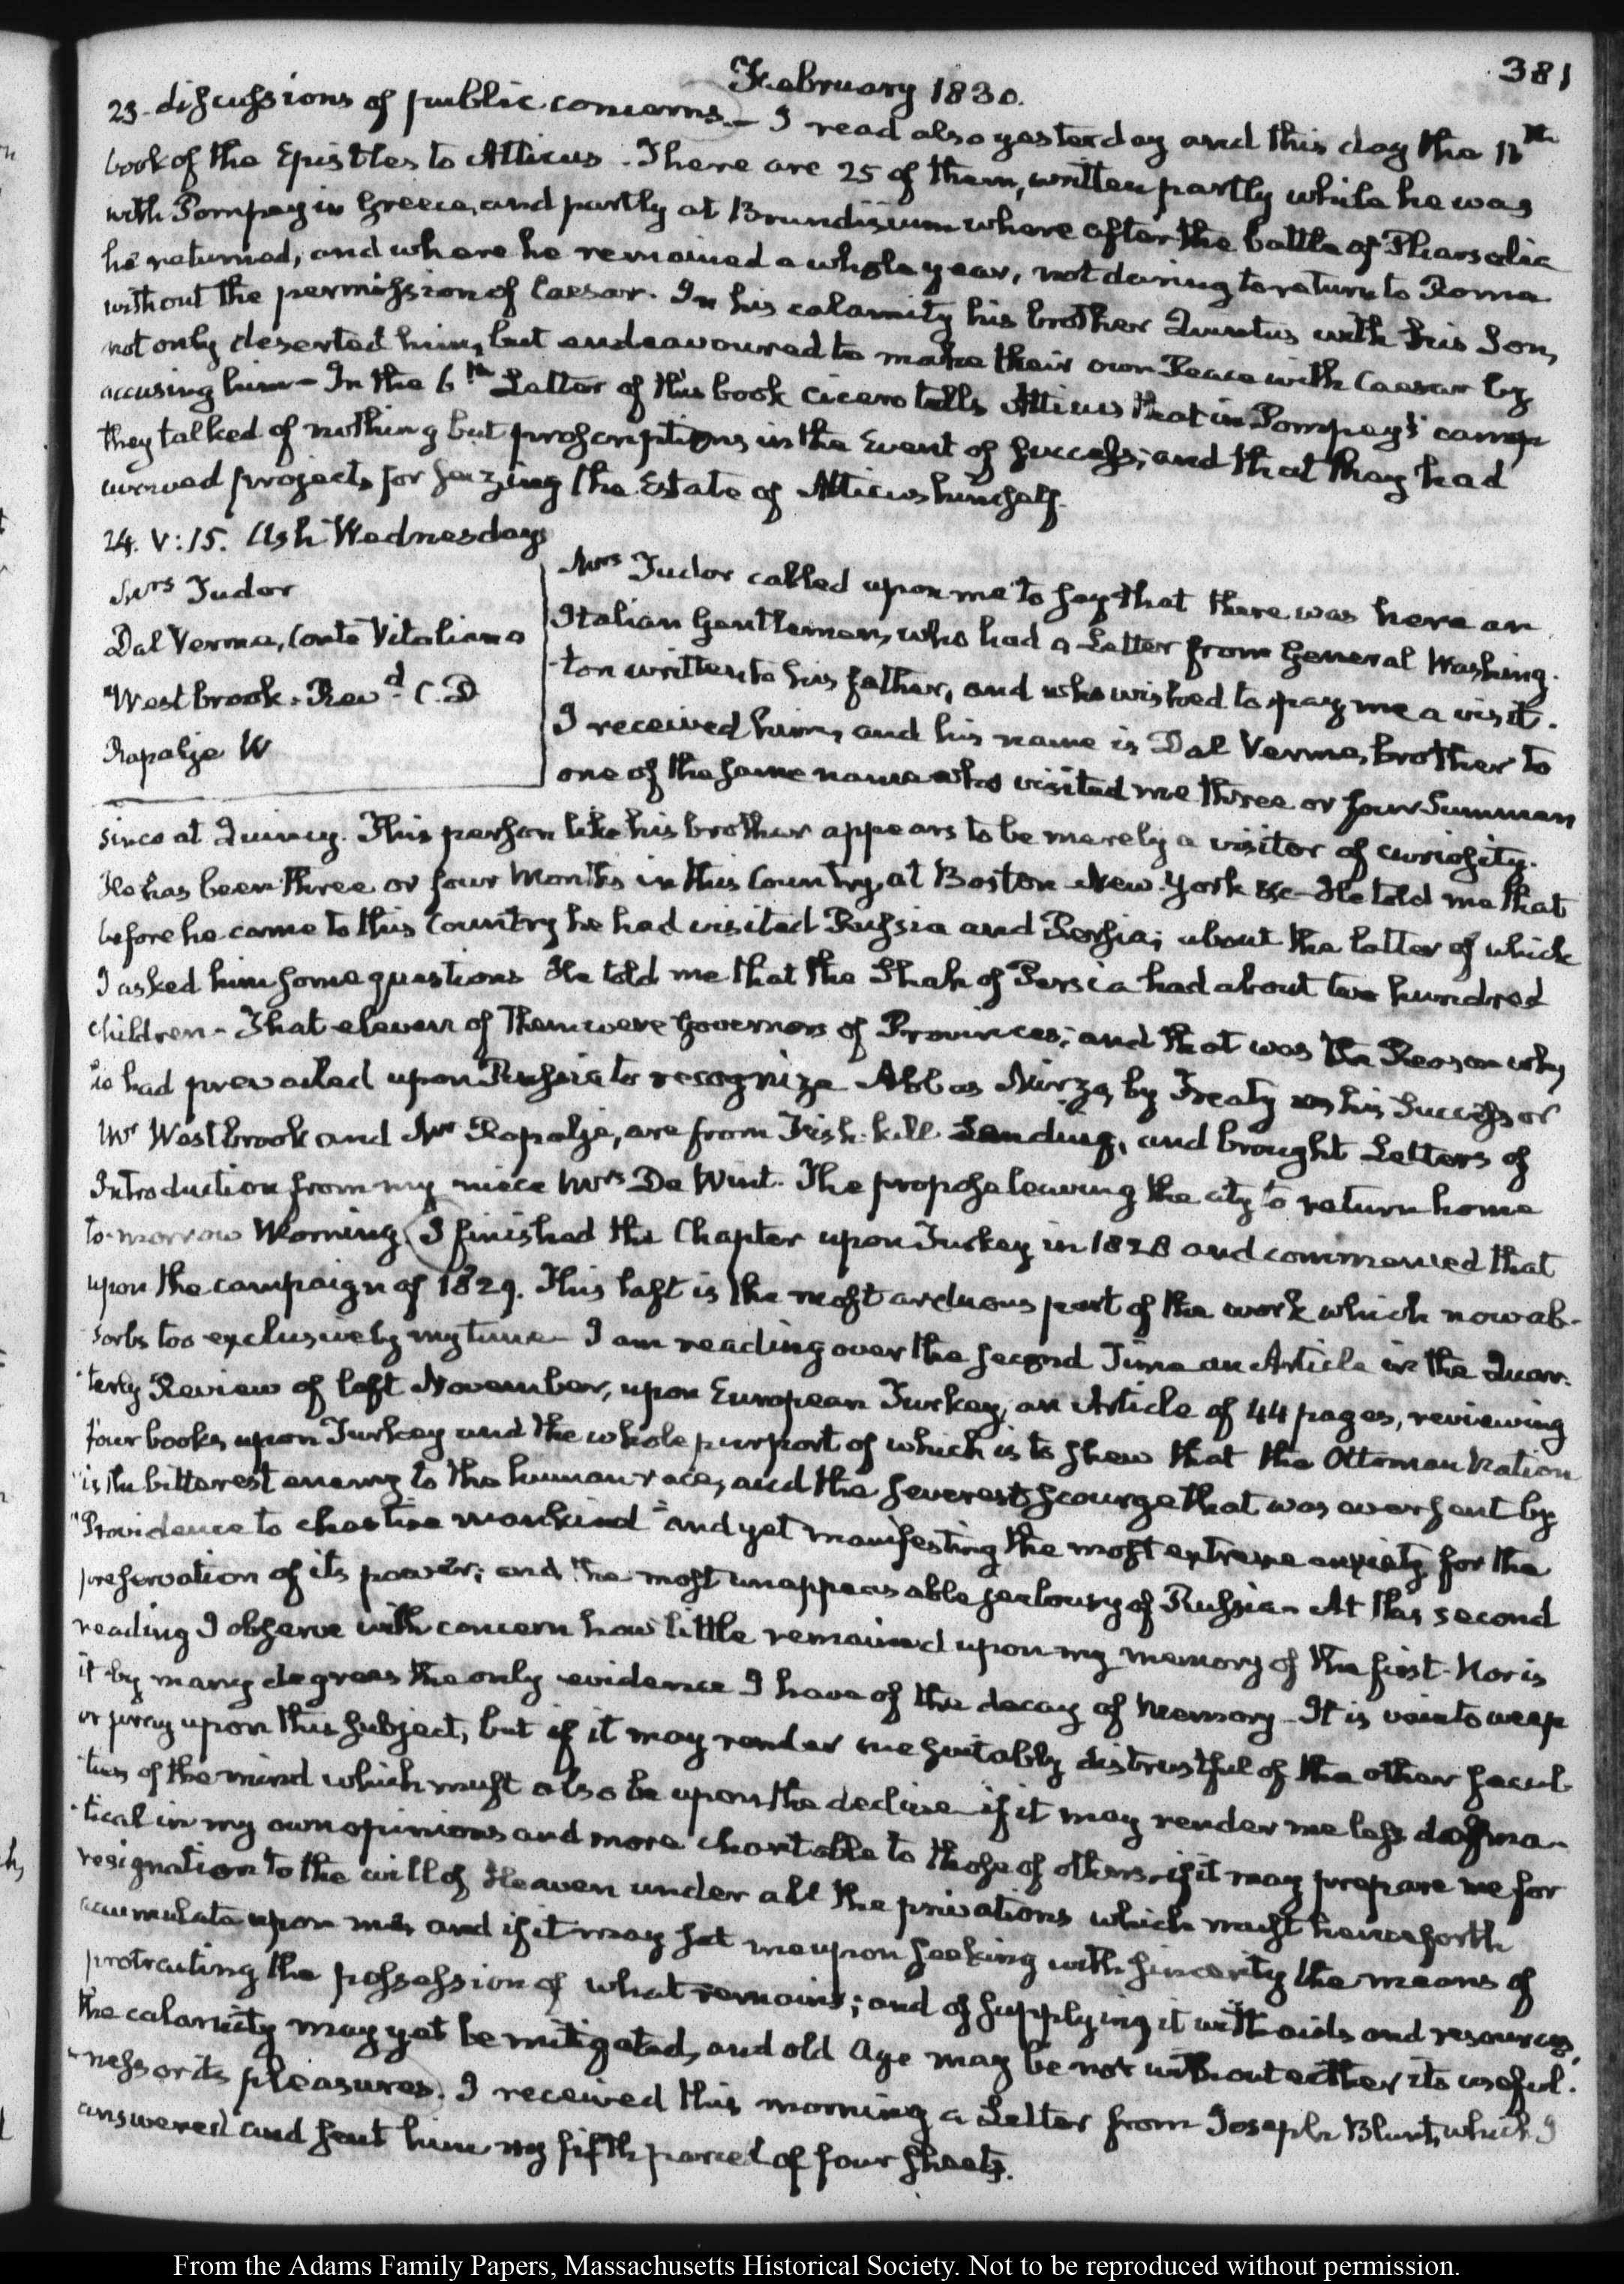 February 1830.
381
23. discussions of public concerns.— I read also yesterday and this day the 11th
book of the Epistles to Atticus. There are 25 of them, written partly while he was
with Pompey in Greece, and partly at Brundisium where after the battle of Pharsalia
he returned, and where he remained a whole year, not daring to return to Rome
without the permission of Caesar. In his calamity his brother Quintus with his Son,
not only deserted him, but endeavoured to make their own Peace with Caesar by
accusing him— In the 6th Letter of this book Cicero tells Atticus that in Pompey's camp
they talked of nothing but proscriptions in the Event of success; and that they had
avowed projects for seizing the Estate of Atticus himself.
24. V:15. Ash Wednesday
Mrs Tudor
Dal Verme, Conte Vitaliano
Westbrook. Revd. C. D
Rapalje W
Mrs Tudor called upon me to say that there was here an
Italian Gentleman, who had a Letter from General Washing-
-ton written to his father, and who wished to pay me a visit.
I received him, and his name is Dal Verme, brother to
one of the same name who visited me three or four Summers
since at Quincy. This person like his brother appears to be merely a visitor of curiosity.
He has been three or four Months in this Country, at Boston New-York &c— He told me that
before he came to this Country he had visited Russia and Persia; about the latter of which
I asked him some questions He told me that the Shah of Persia had about two hundred
children— That eleven of them were Governors of Provinces; and that was the Reason why
he had prevailed upon Russia to recognize Abbas Mirza, by Treaty as his Successor
Mr Westbrook and Mr Rapalje, are from Fish-kill Landing, and brought Letters of
Introduction from my niece Mrs De Wint. The propose leaving the city to return home
to-morrow Morning. I finished the Chapter upon Turkey in 1828 and commenced that
upon the campaign of 1829. This last is the most arduous part of the work which now ab-
sorbs too exclusively my time— I am reading over the second Time an Article in the Quar-
-terly Review of last November, upon European Turkey, an Article of 44 pages, reviewing
four books upon Turkey and the whole purport of which is to shew that the Ottoman Nation
"is the bitterest enemy to the human race, and the severest scourge that was ever sent by
"Providence to chastise mankind" and yet manifesting the most extreme anxiety for the
preservation of its power; and the most unappeasable jealousy of Russia— At this second
reading I observe with concern how little remained upon my memory of the first. Nor is
it by many degrees the only evidence I have of the decay of Memory— It is vain to weep
or pray upon this subject; but if it may render me suitably distrustful of the other facul-
-ties of the mind which must also be upon the decline— if it may render me less dogma-
-tical in my own opinions and more charitable to those of others— if it may prepare me for
resignation to the will of Heaven under all the privations which must henceforth
accumulate upon me, and if it may set me upon seeking with sincerity the means of
protracting the possession of what remains; and of supplying it with aids and resources,
the calamity may yet be mitigated, and old Age may be not without either its useful-
-ness or its pleasures. I received this morning a Letter from Joseph Blunt, which I
answered and sent him my fifth parcel of four sheets.
From the Adams Family Papers, Massachusetts Historical Society. Not to be reproduced without permission.